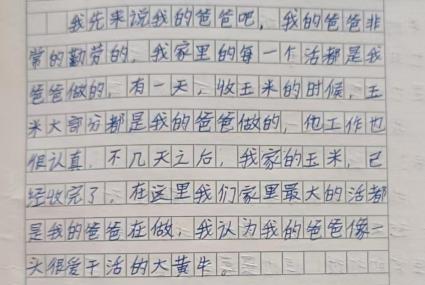 我先来说我的爸爸吧，我的爸爸非
常的勤劳的，我家里的每一个活都是我
爸爸做的，有一天，收玉米的时候，玉
米大部分都是我的爸爸做的，他工作也
很认真，不几天之后，我家的玉米，已
经收完了，在这里我们家里最大的活都
是我的爸爸在做，我认为我的爸爸像一
头很爱干活的大黄牛。